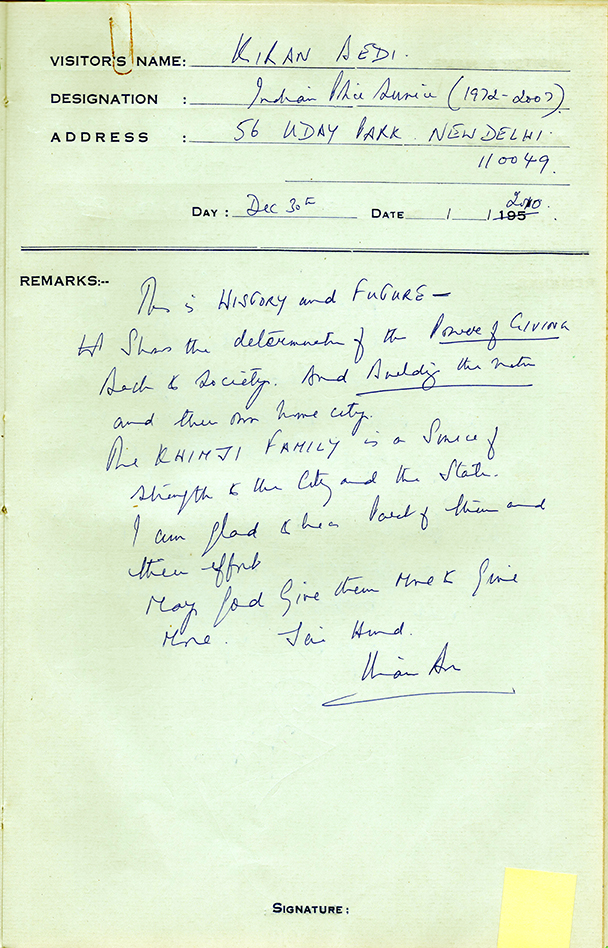 VISITOR'S NAME: KIRAN BEDI.
DESIGNATION : Indian Police Service (1972-2007)
ADDRESS : 56 UDAY PARK NEW DELHI.
110049.
DAY: Dec 30th DATE / /195 2010.
REMARKS:--
This is HISTORY and FUTURE —
It Shows the determination of the Power of GIVING
back to Society. And Building the nation
and their own home city.
The KHIMJI FAMILY is a Source of
strength to the City and the State.
I am glad to be a Part of them and
their effort
May God Give them More to Give
More. Jai Hind.
SIGNATURE: